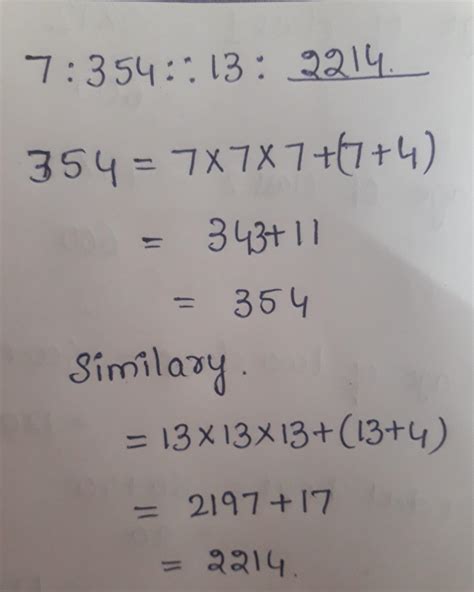 7 : 354 :: 13 : 2214.
354 = 7×7×7+(7+4)
= 343+11
= 354
Similary.
= 13×13×13+(13+4)
= 2197+17
= 2214.